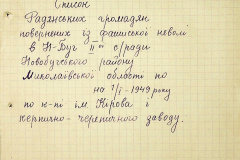 Список
Радянських громадян
повернених із фашиської неволі
в Н-Буг II ой с/ради
Новобугського району
Миколаївської області по
на 1/I-1949 року
по к-пі ім Кірова і
керпично-черепичного заводу.